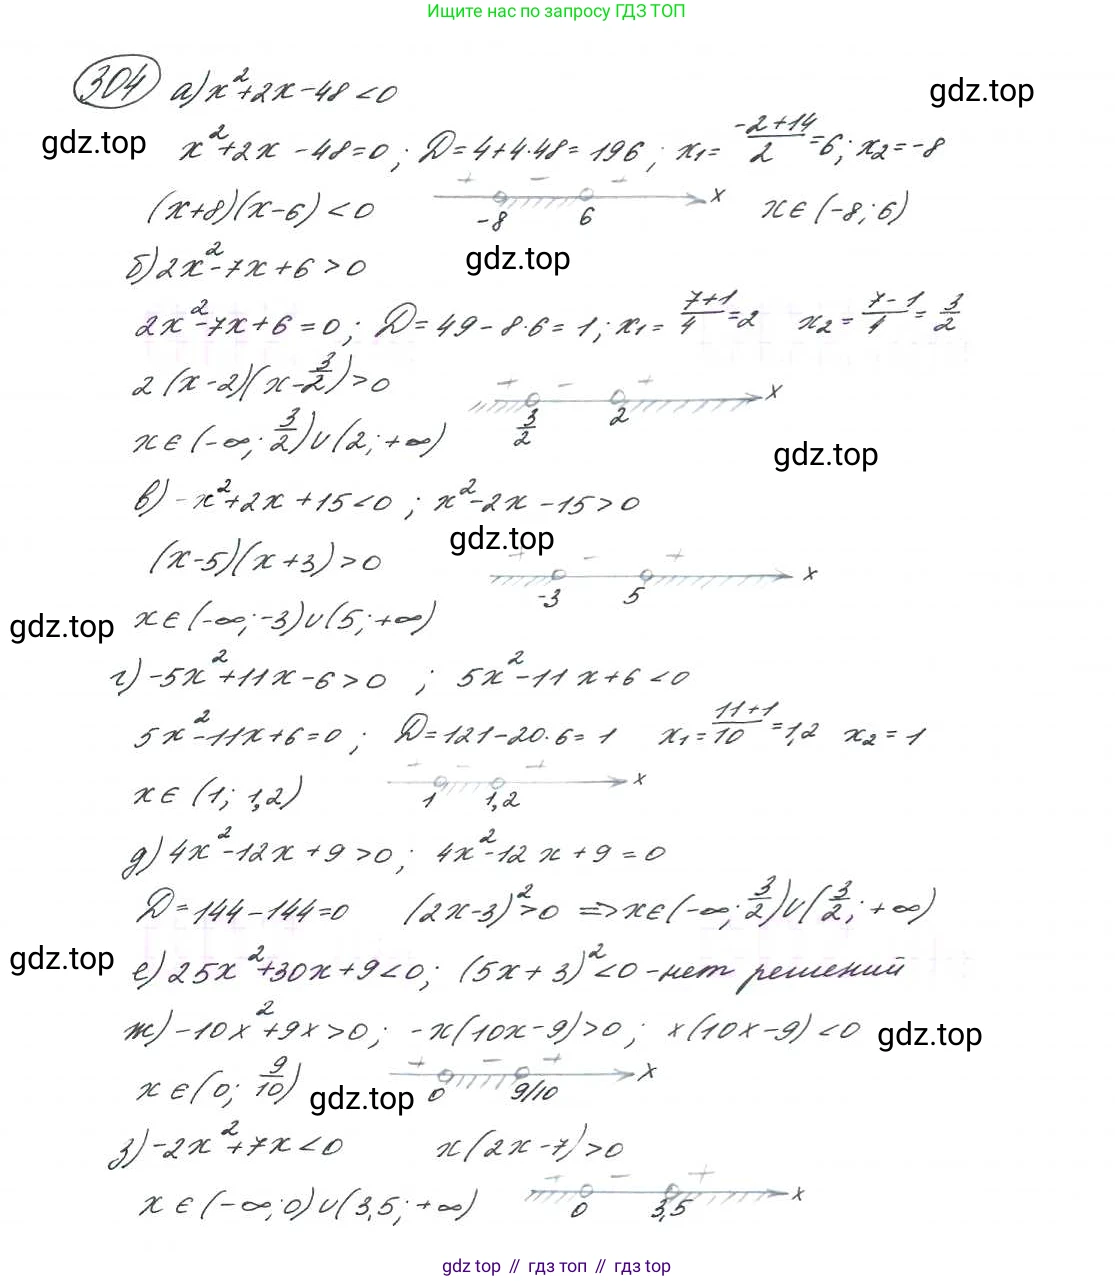 Ищите нас по запросу ГДЗ ТОП
304 а) x²+2x-48<0
gdz.top
gdz.top
x²+2x-48=0; D=4+4·48=196; x₁=(-2+14)/2=6; x₂=-8
(x+8)(x-6)<0 + - + x -8 6 x∈(-8;6)
б) 2x²-7x+6>0
gdz.top
2x²-7x+6=0; D=49-8·6=1; x₁=(7+1)/4=2 x₂=(7-1)/4=3/2
2(x-2)(x-3/2)>0 + - + x 3/2 2
x∈(-∞;3/2)∪(2;+∞)
gdz.top
в) -x²+2x+15<0; x²-2x-15>0
gdz.top
(x-5)(x+3)>0 + - + x -3 5
x∈(-∞;-3)∪(5;+∞)
gdz.top
г) -5x²+11x-6>0; 5x²-11x+6<0
5x²-11x+6=0; D=121-20·6=1 x₁=(11+1)/10=1,2 x₂=1
x∈(1; 1,2) - - + x 1 1,2
д) 4x²-12x+9>0; 4x²-12x+9=0
D=144-144=0 (2x-3)²>0 => x∈(-∞;3/2)∪(3/2;+∞)
gdz.top
е) 25x²+30x+9<0; (5x+3)²<0 - нет решений
ж) -10x²+9x>0; -x(10x-9)>0; x(10x-9)<0
gdz.top
x∈(0; 9/10) + - + x 0 9/10
gdz.top
з) -2x²+7x<0 x(2x-7)>0
x∈(-∞;0)∪(3,5;+∞) + - + x 0 3,5
gdz.top // гдз топ // гдз.топ